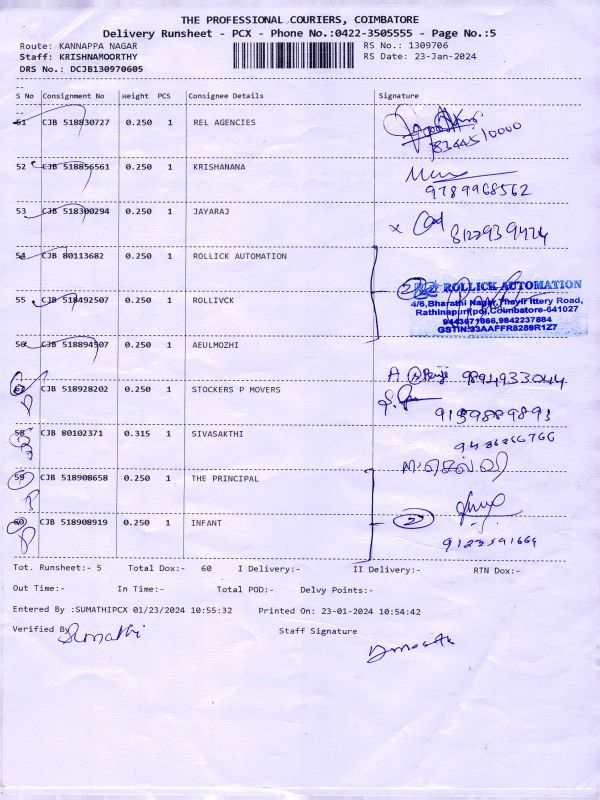 THE PROFESSIONAL COURIERS, COIMBATORE
Delivery Runsheet - PCX - Phone No.:0422-3505555 - Page No.:5
Route: KANNAPPA NAGAR RS No.: 1309706
Staff: KRISHNAMOORTHY RS Date: 23-Jan-2024
DRS No.: DCJB130970605
S No Consignment No Weight PCS Consignee Details Signature
51 CJB 518830727 0.250 1 REL AGENCIES
52 CJB 518856561 0.250 1 KRISHANANA
9789968562
53 CJB 518300294 0.250 1 JAYARAJ
x
54 CJB 80113682 0.250 1 ROLLICK AUTOMATION
2 ROLLICK AUTOMATION
55 CJB 518492507 0.250 1 ROLLIVCK
4/6,Bharathi Nagar,Thayir Ittery Road,
Rathinapuri(po),Coimbatore-641027
9443671966,9842237884
GSTIN:33AAFFR8289R1Z7
56 CJB 518894507 0.250 1 AEULMOZHI
9894933044
57 CJB 518928202 0.250 1 STOCKERS P MOVERS
9159889893
58 CJB 80102371 0.315 1 SIVASAKTHI
59 CJB 518908658 0.250 1 THE PRINCIPAL
60 CJB 518908919 0.250 1 INFANT
2
9123591664
Tot. Runsheet:- 5 Total Dox:- 60 I Delivery:- II Delivery:- RTN Dox:-
Out Time:- In Time:- Total POD:- Delvy Points:-
Entered By :SUMATHIPCX 01/23/2024 10:55:32 Printed On: 23-01-2024 10:54:42
Verified By Sumathi
Staff Signature